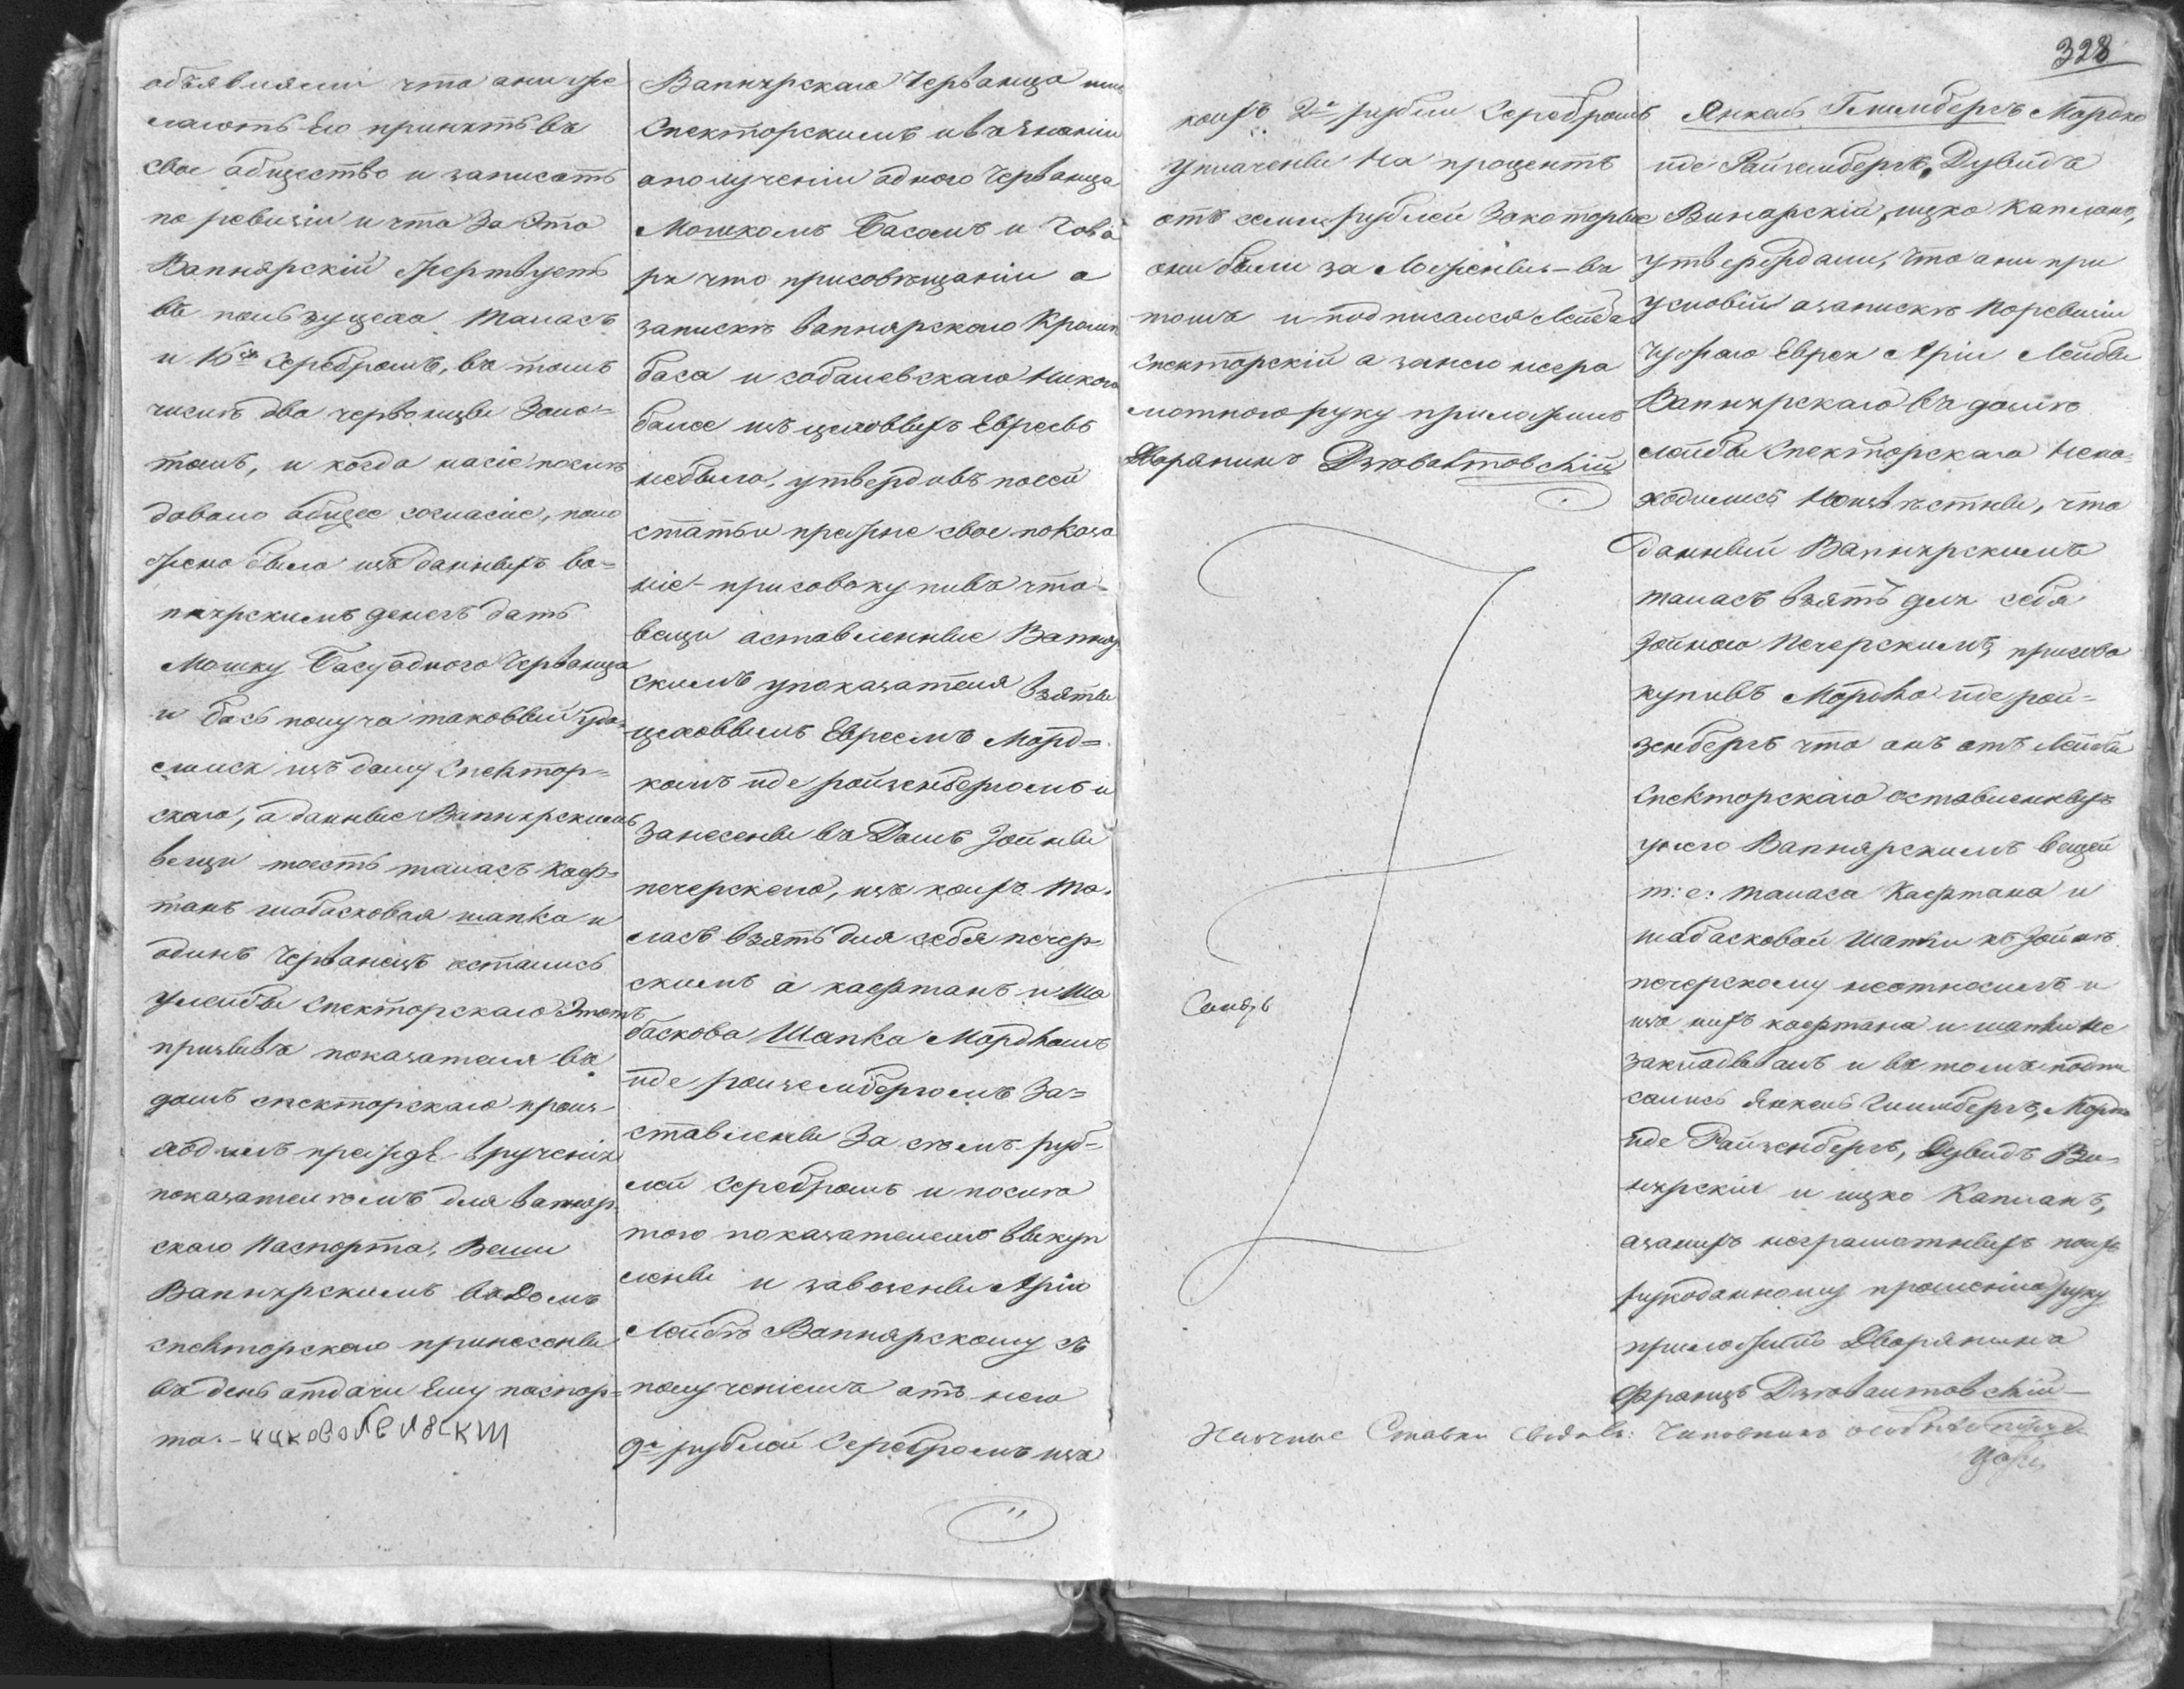 объявляли что они же
лаютъ Его принять въ
свое общество и записать
по ревизіи и что За Это
Вапнярскій жертвуетъ
въ пользу цеха Таласъ
и 16 Серебромъ, въ томъ
числѣ два червонцы Золо=
томъ, и когда насіе послѣ
довало общее согласіе, поло
жено было изъ данныхъ ва=
пнярскимъ денегъ дать
Мошку Басу одного Червонца
и Басъ получа таковый уда=
лился изъ дому Спектор=
скаго, а данные Вапнярскимъ
вещи тоесть таласъ Каф=
танъ шабасковая шапка и
одинъ Червонецъ остались
улейбы Спекторскаго Этотъ
призывъ показателя въ
домъ спекторскаго проис
ходилъ прежде врученія
показателемъ для вапняр
скаго Паспорта, Вещи
Вапнярскимъ въ Домъ
спекторскаго принесены
въ день отдачи Ему паспор=
та.-
Вапнярскаго Червонца
Спекторскимъ ивъ знаніи
ополученіи одного Червонца
Мошкомъ Басомъ и Гова
ря что присовѣщаніи о
запискѣ вапнярского Кромѣ
баса и собалевскаго Никого
балее изъ цеховыхъ Евреевъ
небыло, утвердивъ повсей
статьи прежне свое показа
ніе - присовокупивъ что=
вещи оставленные Вапняр
скимъ упоказателя взяты
цеховымъ Евреемъ Морд=
комъ иде ройзенбергомъ и
Занесены въ Домъ Зойны
печерскаго, изъ коихъ та.
ласъ взятъ для себя печер
скимъ а кафтанъ и Ша
баскова Шапка Мордкомъ
иде роизенбергомъ За=
ставлены За семъ руб=
лей Серебромъ и после
того показателемъ выкуп
лены и завезены Арію
Лейбѣ Вапнярскому съ
полученіемъ отъ него
9 рублей Серебромъ изъ
коихъ 2 рубли Серебромъ
уплачены На процентъ
отъ семи рублей Закоторые
они были за Ложены - въ
томъ и подписался Лейба
Спекторскій а занего негра
мотного руку приложилъ
Дворянинъ Дзювалтовскій
328
Янкель Глимбергъ Мордко
иде Райзенбергъ, Дувидъ
Винарскій, ицко Каплонъ,
утверждали, что они при
условіи озапискѣ Поревизіи
Чужаго Еврея Арія Лейбы
Вапнярскаго въ домѣ
лейбы Спекторскаго Нена=
ходились Ноизвѣстны, что
данный Вапнярскимъ
таласъ взятъ для себя
Зойною Печерскимъ, присово
купивъ Мордко иде рой=
зенбергъ что онъ отъ Лейбы
Спекторскаго оставленныхъ
унего Вапнярскимъ вещей
т: е: таласа Кафтана и
шабасковой Шапки къ Зойнѣ
печерскому неотносилъ и
изъ нихъ кафтана и шапки не
закладывалъ и въ томъ подпи
сались Янкель Глимбергъ, Мордко
иде Райзенбергъ, Дувидъ Ви=
нярскій и ицко Капланъ,
азанихъ неграмотныхъ поихъ
рукоданному прошенію руку
приложилъ Дворянинъ
Францъ Дзювалтовскій